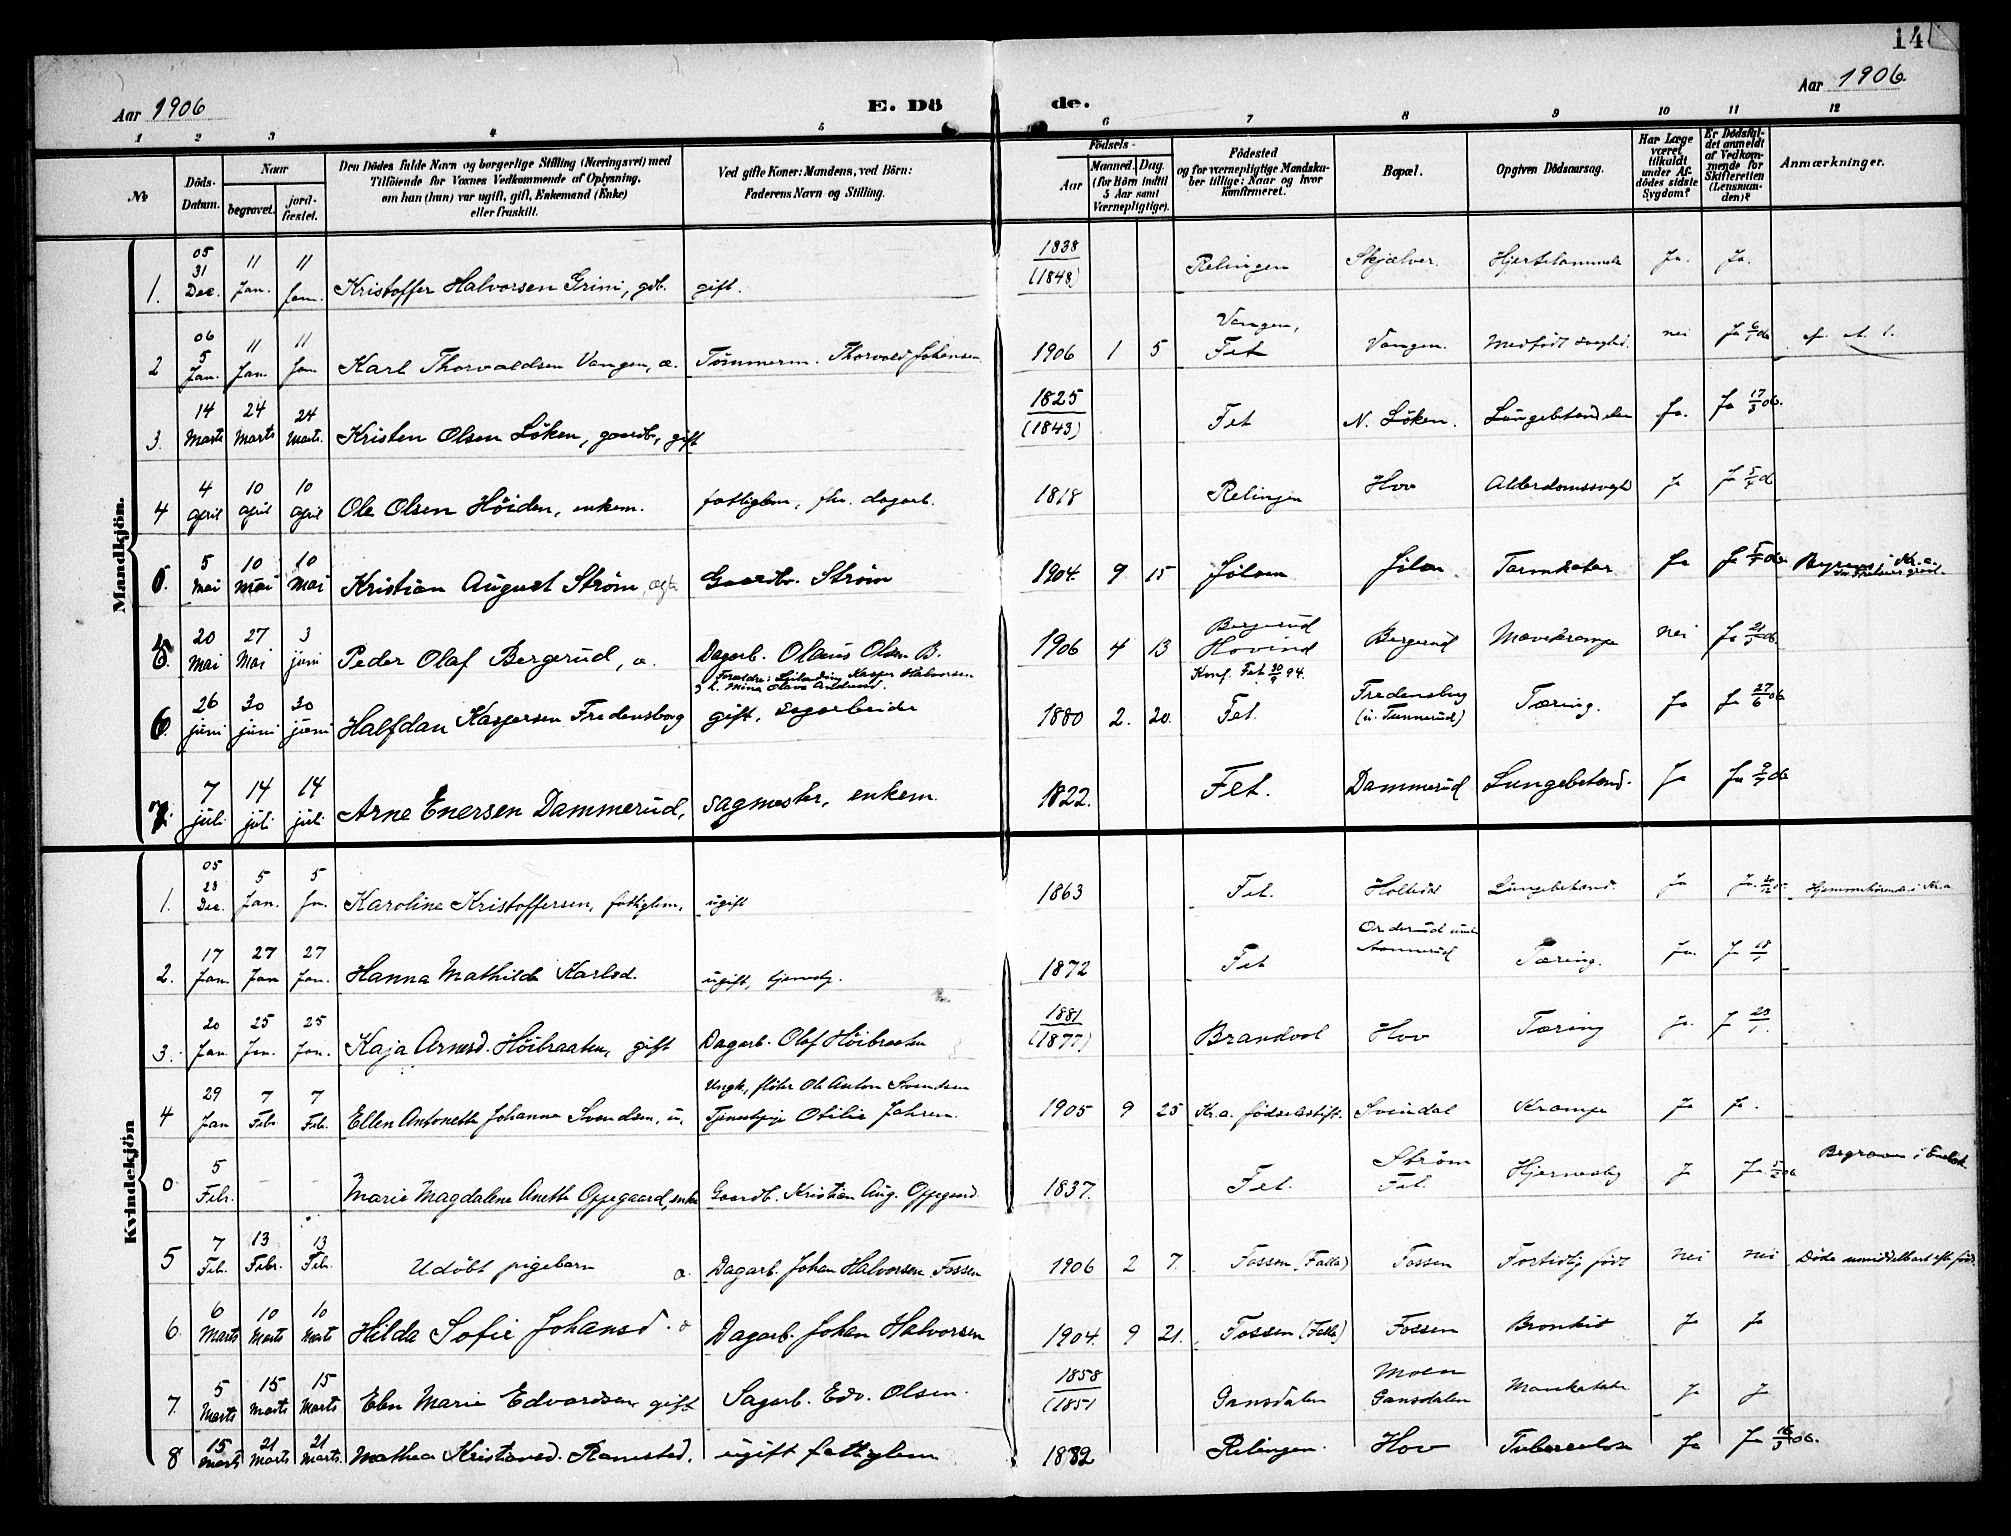 14
Aar 1906
E. Dö
de.
Aar 1906.
1 2 3 4 5 6 7 8 9 10 11 12
No
Döds-Datum.
Naar
begravet.
jord-fæstet.
Den Dödes fulde Navn og borgerlige Stilling (Næringsvei) med
Tilföiende for Voxnes Vedkommende af Oplysning,
om han (hun) var ugift, gift, Enkemand (Enke)
eller fraskilt.
Ved gifte Koner: Mandens, ved Börn:
Faderens Navn og Stilling.
Födsels-
Aar
Maaned. Dag.
(for Börn indtil
5 Aar samt
Værnepligtige).
Födested
og for værnepligtige Mandska-
ber tillige: Naar og hvor
konfirmeret.
Bopæl.
Opgiven Dödsaarsag.
Har Læge
været
tilkaldt
under Af-
dödes sidste
Sygdom?
Er Dödsfal-
det anmeldt
af Vedkom-
mende for
Skifteretten
(Lensman-
den)?
Anmærkninger.
Mandkjön.
1. 05 31 Dec. 11 Jan. 11 Jan. Kristoffer Halvorsen Grini, gdb. gift. 1838 (1848) Relingen Skjælver. Hjertelammelse Ja. Ja.
2 06 5 Jan. 11 Jan. 11 Jan Karl Thorvaldsen Vangen, æ. Tömmerm. Thorvald Johansen 1906 1 5 Vangen, Fet Vangen. Medfödt svaghed. nei Ja 6/1 06
3. 14 Marts 24 Marts 24 Marts. Kristen Olsen Löken, gaardb., gift 1825 (1843) Fet N. Löken. Lungebetændelse Ja. Ja 17/3 06.
4 4 April 10 April 10 April Ole Olsen Höiden, enkem. fattiglem, fhv. dagarb. 1818 Relingen Hov Alderdomssvagh. Ja Ja 5/4 06
0. 5 Mai 10 Mai 10 Mai Kristian August Ström, ægte Gaardbr. Ström 1904. 9 15 Jölsen Jölsen. Tarmkatar. Ja Ja 5/5 06
5. 20 Mai 27 Mai 3 juni Peder Olaf Bergerud, æ. Dagarb. Olaus Olsen B. 1906 4 13 Bergerud Hovind Bergerud Mavekrampe nei Ja 21/5 06
6. 26 juni 30 juni 30 juni Halfdan Kaspersen Fredensborg gift, Sagarbeider 1880 2. 20. Konf. Fet 30/9 94. Fet. Fredensborg (u. Tunnerud) Tæring. Ja Ja 27/6 06
7. 7 juli 14 juli 14 juli Arne Enersen Dammerud, sagmester, enkem. 1822. Fet. Dammerud Lungebetænd. Ja Ja 9/7 06
Kvindekjön
1. 05 23 Dec. 5 Jan. 5 Jan. Karoline Kristoffersen, fattiglem, ugift 1863 Fet. Lungebetænd. Ja Ja. Hjemmehörende i Kr.a
2. 17 Jan. 27 Jan 27 Jan. Hanna Mathilde Karlsd. ugift, tjenestp. 1872 Fet Orderud under Tæring. Ja. Ja 18/1
3. 20 Jan. 25 Jan. 25 Jan. Kaja Arnesd. Höibraaten, gift Dagarb. Olaf Höibraaten 1881 (1877) Brandvol Hov Tæring Ja. Ja 23/1.
4 29 Jan 7 Febr. 7 Feb. Ellen Antonette Johanne Svendsen, u. Ungk., flöter Ole Anton Svendsen Tjenestpige Otilie Jahren. 1905 9 25 Kr.a. födselsstift. Svindal Krampe Ja Ja.
0 5 Febr. - - Marie Magdalene Anette Oppegaard, enke Gaardb. Kristian Aug. Oppegaard. 1837. Fet. Ström Fet. Hjerneslag Ja Ja 5/2 06 Begraven i Enebak
5 7 Feb. 13 Febr. 13 Feb. Udöbt pigebarn æ. Dagarb. Johan Halvorsen Fossen 1906 2 7. Fossen (Falla) Fossen Fortidlig födt nei nei Döde umiddelbart efter föds.
6. 6 Marts 10 Marts 10 Marts Hilda Sofie Johansd. æ Dagarb. Johan Halvorsen 1904. 9 21. Fossen (Falla) Fossen Bronkit Ja Ja
7. 5 Marts 15 Marts 15 Marts Elen Marie Edvardsen gift Sagarb. Edv. Olsen. 1858 (1851 Gansdalen Moen Gansdalen Mavekatar Ja Ja
8 15 Marts 21 Marts 21 Marts. Mathea Kristensd. Ramstad, ugift fattiglem 1882 Relingen. Hov Tuberculose Ja Ja 16/3 06.